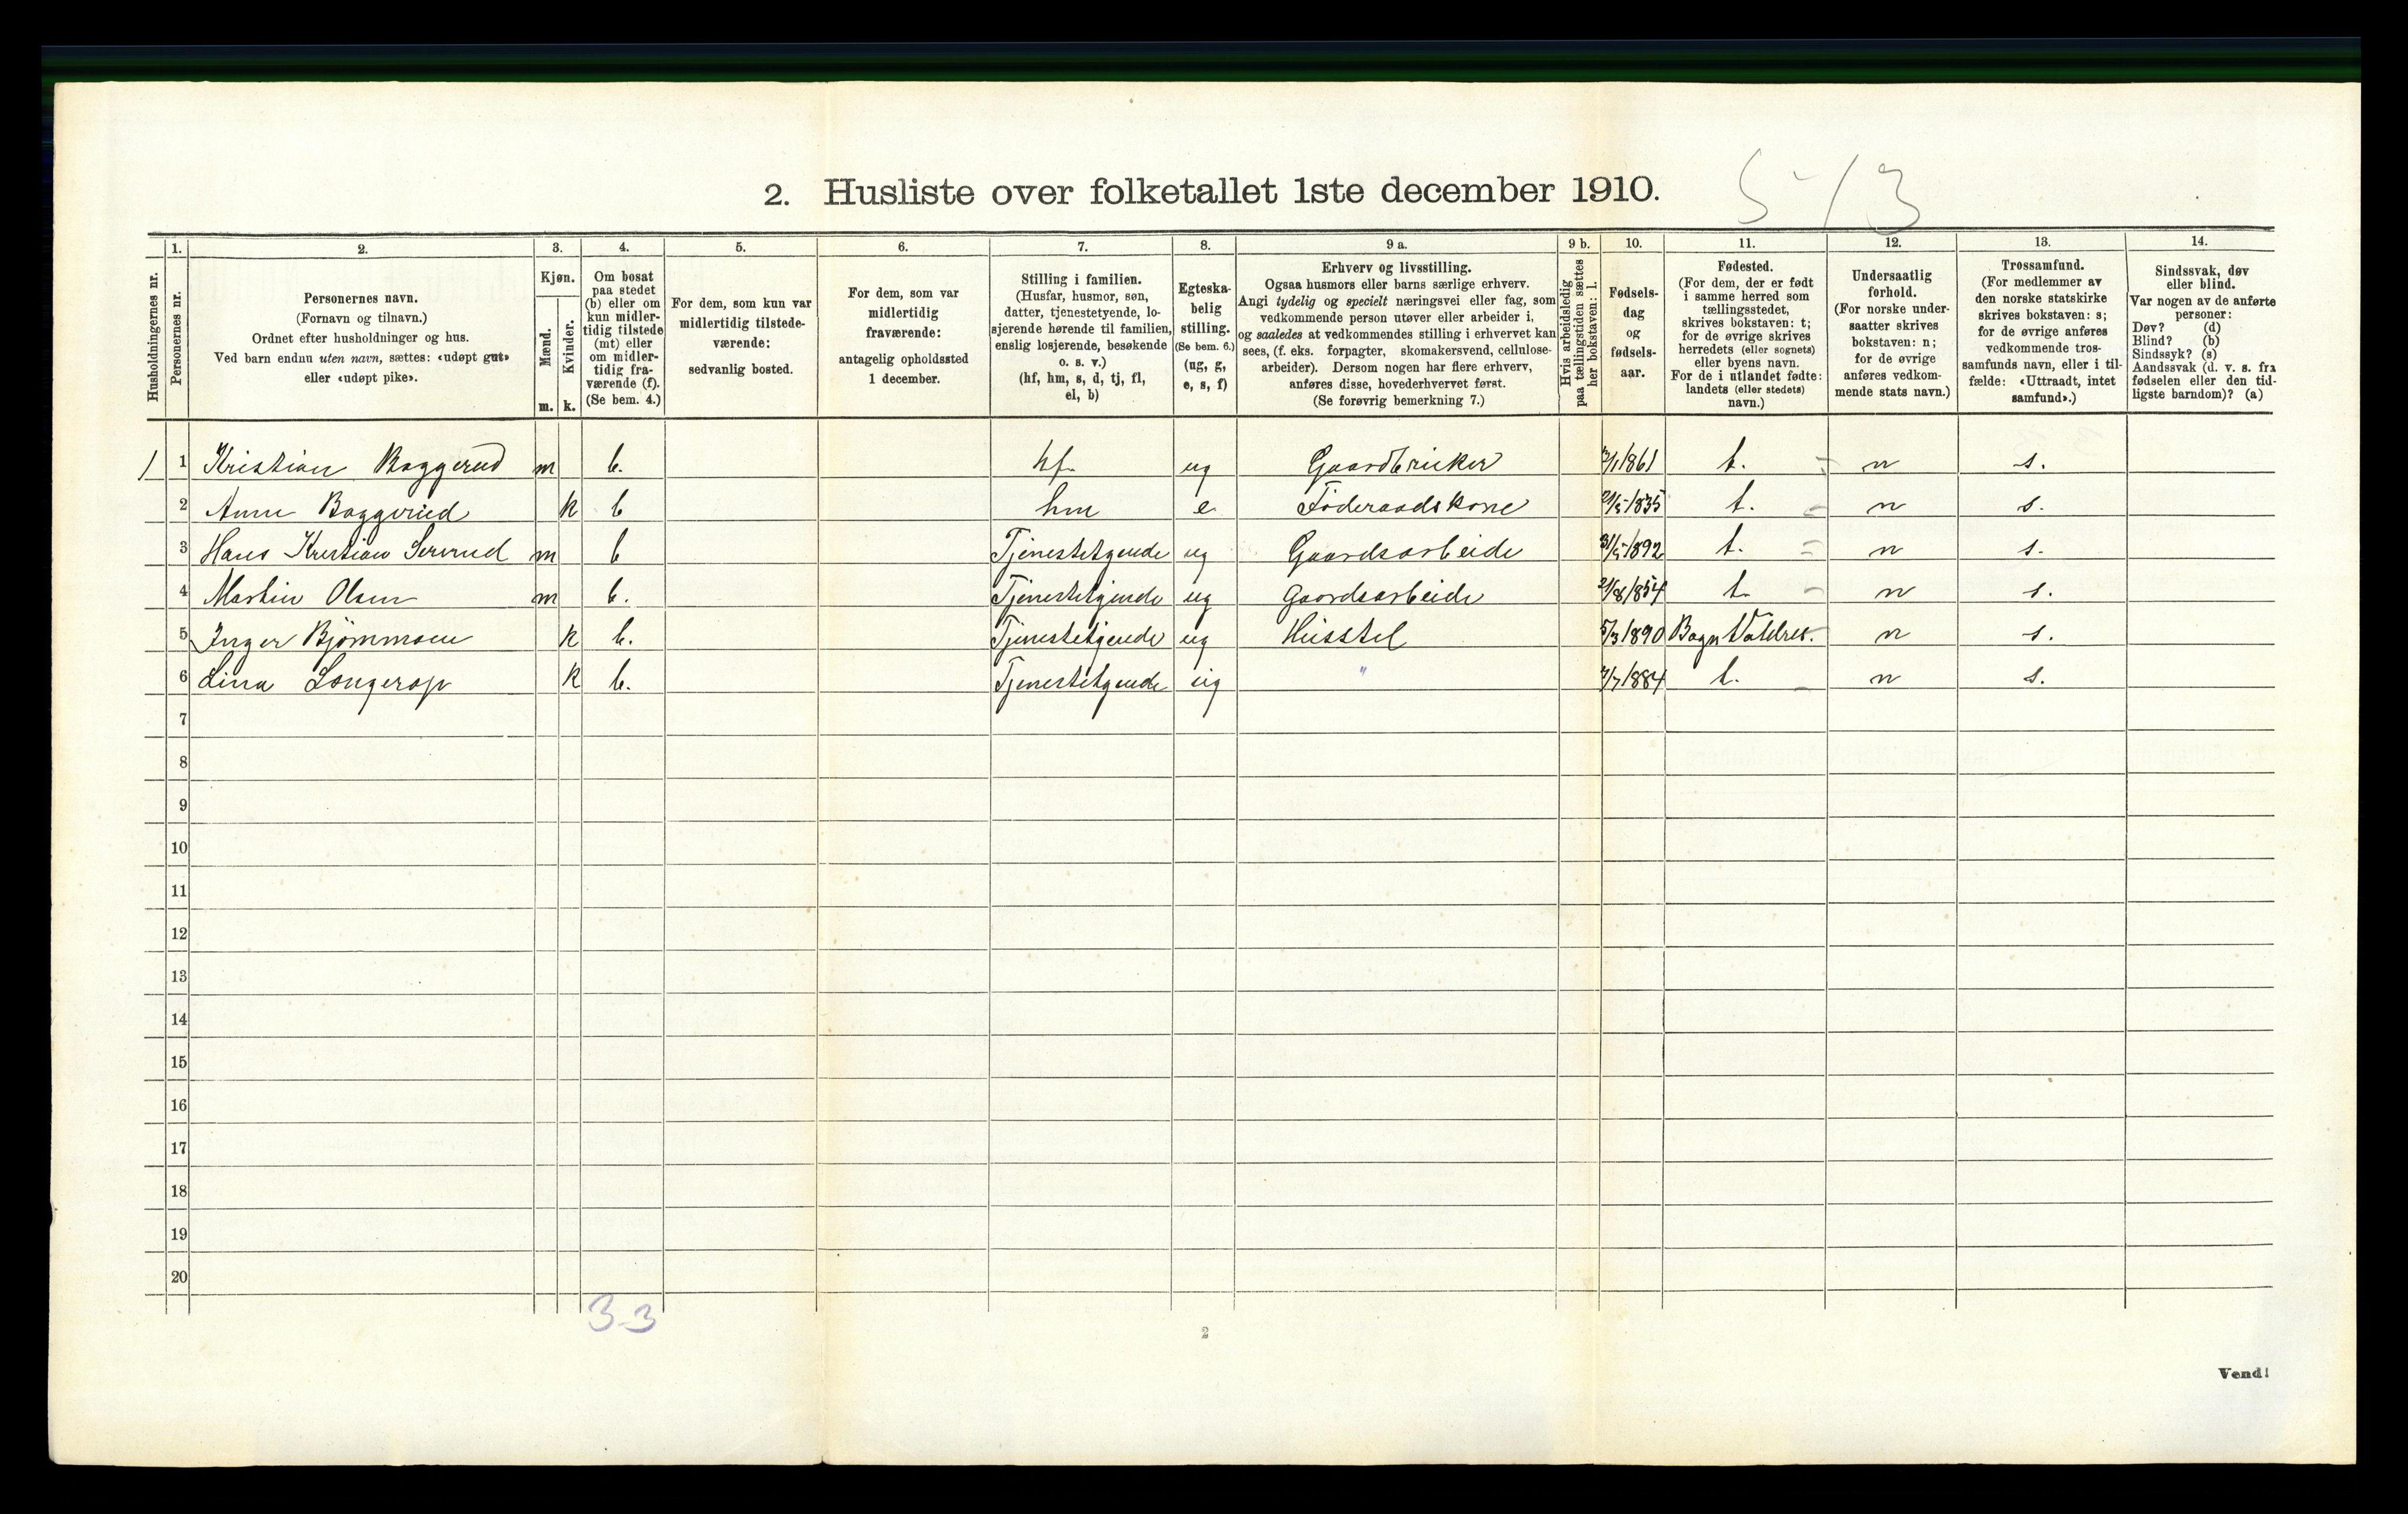 2. Husliste over folketallet 1ste december 1910.
5/3
Husholdningernes nr.
1.
Personernes nr.
2.
Personernes navn.
(Fornavn og tilnavn.)
Ordnet efter husholdninger og hus.
Ved barn endnu uten navn, sættes: «udøpt gut»
eller «udøpt pike».
3.
Kjøn.
Mænd.
m.
Kvinder.
k.
4.
Om bosat
paa stedet
(b) eller om
kun midler-
tidig tilstede
(mt) eller
om midler-
tidig fra-
værende (f).
(Se bem. 4.)
5.
For dem, som kun var
midlertidig tilstede-
værende:
sedvanlig bosted.
6.
For dem, som var
midlertidig
fraværende:
antagelig opholdssted
1 december.
7.
Stilling i familien.
(Husfar, husmor, søn,
datter, tjenestetyende, lo-
sjerende hørende til familien,
enslig losjerende, besøkende
o. s. v.)
(hf, hm, s, d, tj, fl,
el, b)
8.
Egteska-
belig
stilling.
(Se bem. 6.)
(ug, g,
e, s, f)
9 a.
Erhverv og livsstilling.
Ogsaa husmors eller barns særlige erhverv.
Angi tydelig og specielt næringsvei eller fag, som
vedkommende person utøver eller arbeider i,
og saaledes at vedkommendes stilling i erhvervet kan
sees, (f. eks. forpagter, skomakersvend, cellulose-
arbeider). Dersom nogen har flere erhverv,
anføres disse, hovederhvervet først.
(Se forøvrig bemerkning 7.)
9 b.
Hvis arbeidsledig
paa tællingstiden sættes
her bokstaven: l.
10.
Fødsels-
dag
og
fødsels-
aar.
11.
Fødested.
(For dem, der er født
i samme herred som
tællingsstedet,
skrives bokstaven: t;
for de øvrige skrives
herredets (eller sognets)
eller byens navn.
For de i utlandet fødte:
landets (eller stedets)
navn.)
12.
Undersaatlig
forhold.
(For norske under-
saatter skrives
bokstaven: n;
for de øvrige
anføres vedkom-
mende stats navn.)
13.
Trossamfund.
(For medlemmer av
den norske statskirke
skrives bokstaven: s;
for de øvrige anføres
vedkommende tros-
samfunds navn, eller i til-
fælde: «Uttraadt, intet
samfund».)
14.
Sindssvak, døv
eller blind.
Var nogen av de anførte
personer:
Døv? (d)
Blind? (b)
Sindssyk? (s)
Aandssvak (d. v. s. fra
fødselen eller den tid-
ligste barndom)? (a)
1 1 Kristian Baggerud m b. hf. ug Gaardbruker 1861 t. n s.
2 Anne Baggerud k b hm e Föderaadskone 21/5-1835 t. n s.
3 Hans Kristian m b Tjenestetyende ug Gaardsarbeide 31/5-1892 t. n s.
4 Martin Olsen m b. Tjenestetyende ug Gaardsarbeide 21/8 1854 t. n s.
5 Inger Bjørnmoen k b. Tjenestetyende ug Husstel 5/3 1890 Bagn Valdres. n s.
6 Lina Longerap k b. Tjenestetyende ug " 7/7 1884 t. n s.
7
8
9
10
11
12
13
14
15
16
17
18
19
20
3-3
2
Vend!